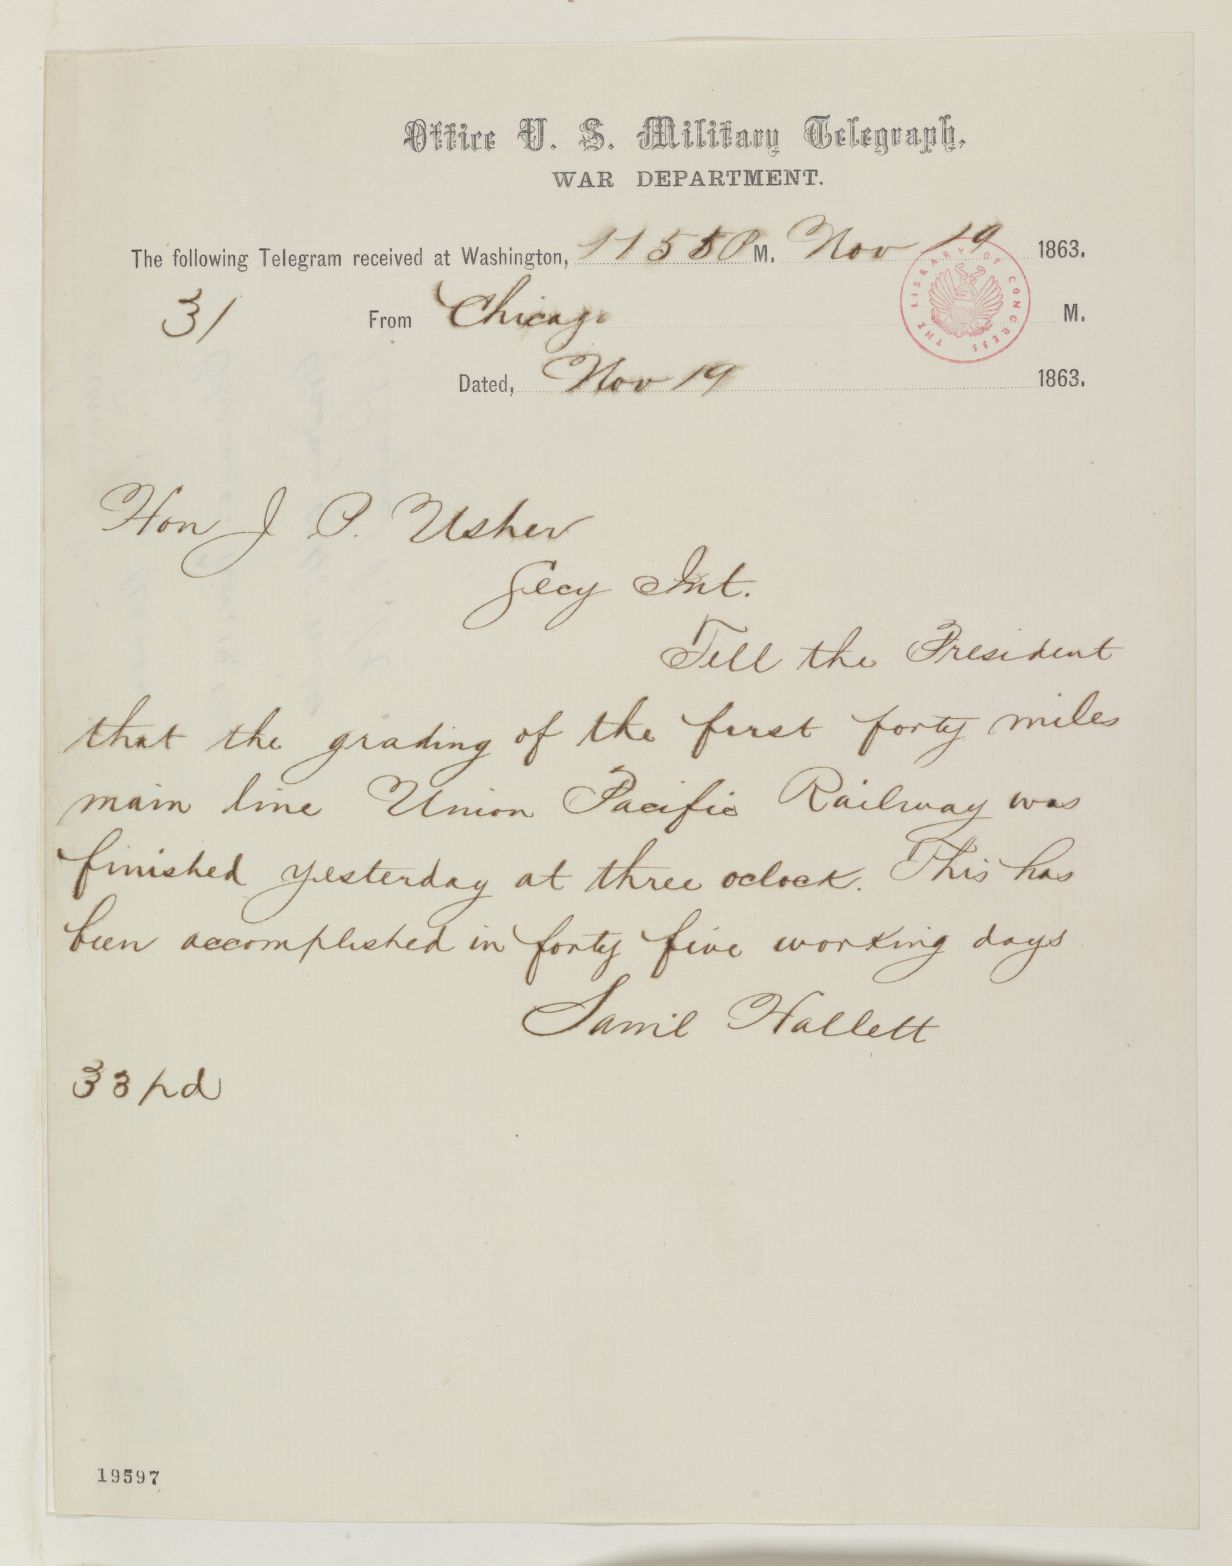 Office U. S. Military Telegraph,
WAR DEPARTMENT.
The following Telegram received at Washington, 11 55 P M. Nov 19 1863.
31 From Chicago M.
Dated, Nov 19 1863.
THE LIBRARY OF CONGRESS
Hon J P. Usher
Secy Int.
Tell the President
that the grading of the first forty miles
main line Union Pacific Railway was
finished yesterday at three oclock. This has
been accomplished in forty five working days
Saml Hallett
33 pd
19597